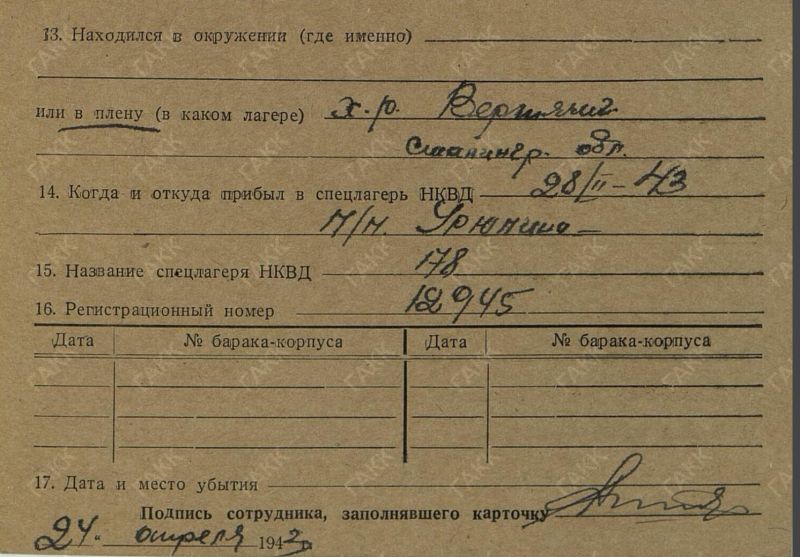 13. Находился в окружении (где именно)
или в плену (в каком лагере) х-р. Вертячий
Сталингр. обл.
14. Когда и откуда прибыл в спецлагерь НКВД 28/II-43
п/п. Урюпино
15. Название спецлагеря НКВД 178
16. Регистрационный номер 12945
Дата № барака-корпуса Дата № барака-корпуса
17. Дата и место убытия
Подпись сотрудника, заполнявшего карточку
24 апреля 1943